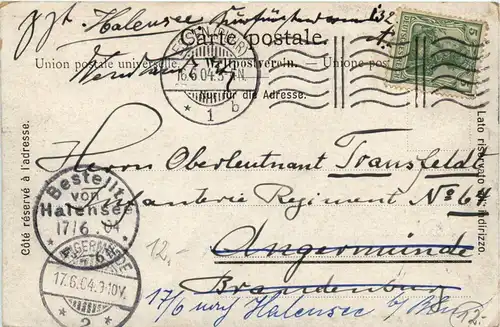 Halensee Kurfürstendamm 132
Carte postale.
Union postale universelle. Weltpostverein. Unione post
Nur für die Adresse.
16.6.04.
* 1 b *
5
Côté réservé à l'adresse.
Lato riservato indirizzo.
Herrn Oberleutnant Transfeldt
Infanterie Regiment No 64
Angermünde
Brandenburg
Bestellt
von
Halensee
17/6 04
ANGERMÜNDE
17.6.04.9-10V.
* 2 *
12.-
17/6 nach Halensee b/ Berlin